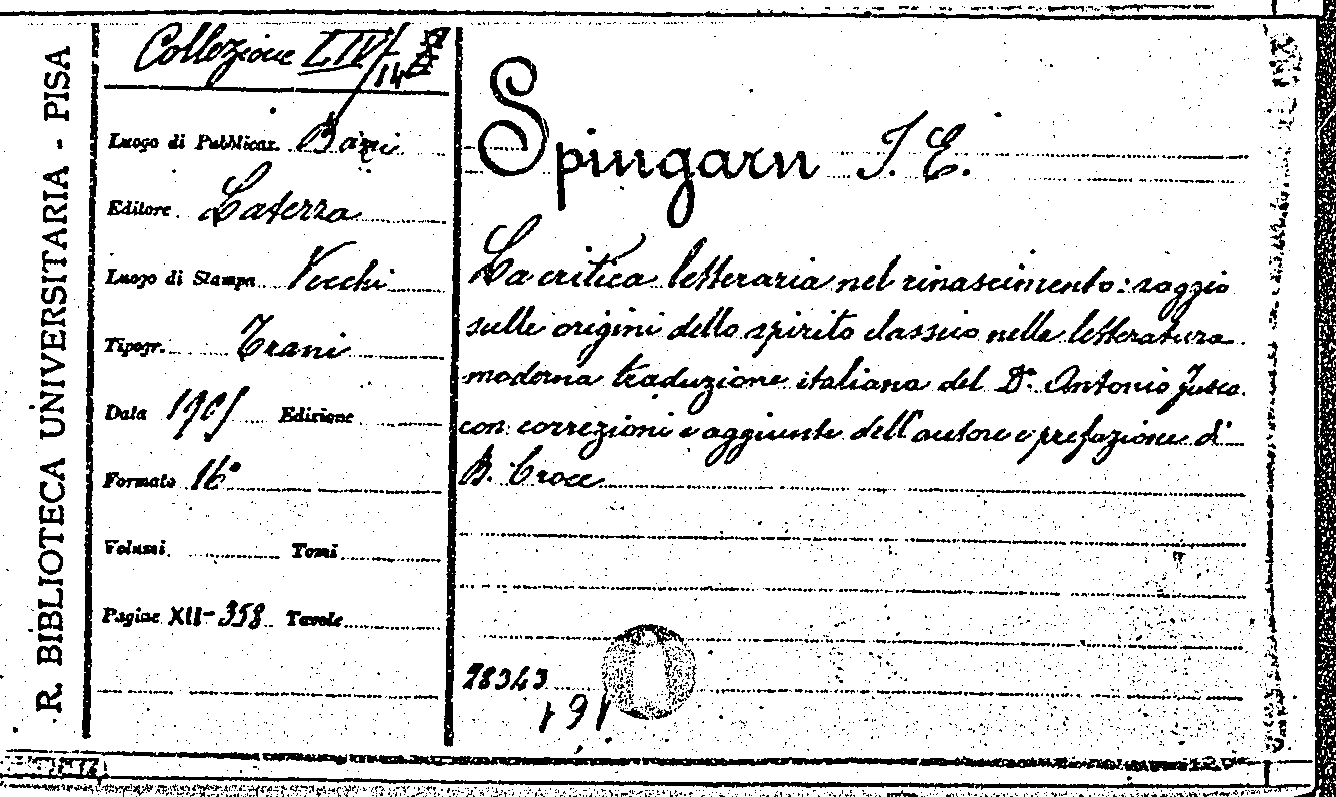 R. BIBLIOTECA UNIVERSITARIA - PISA
Collezione LIV/14
Luogo di Pubblicaz. Bari
Editore Laterza
Luogo di Stampa Vecchi
Tipogr. Trani
Data 1905 Edizione
Formato 16°
Volumi Tomi
Pagine XII-358 Tavole
Spingarn J. E.
La critica letteraria nel rinascimento: saggio
sulle origini dello spirito classico nella letteratura
moderna traduzione italiana del Dr. Antonio Fusco
con correzioni e aggiunte dell'autore e prefazione di
B. Croce
78343